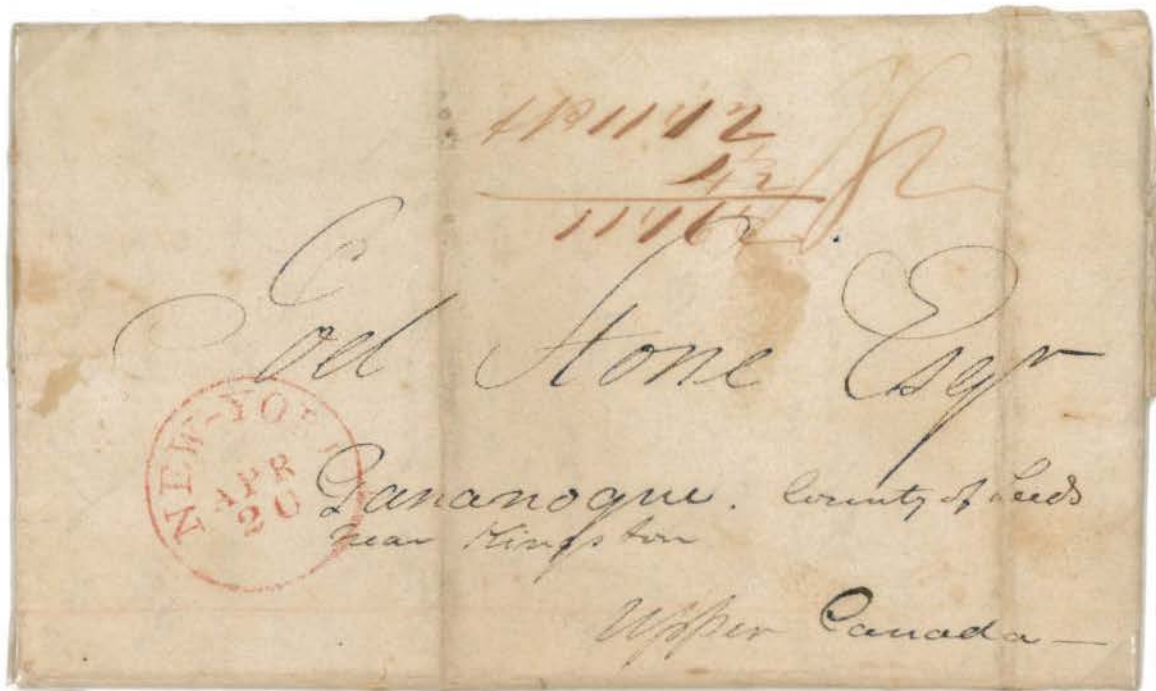 Joel Stone Esqr
NEW-YORK
APR
20
Gananoque. County of Leeds
near Kingston
Upper Canada —